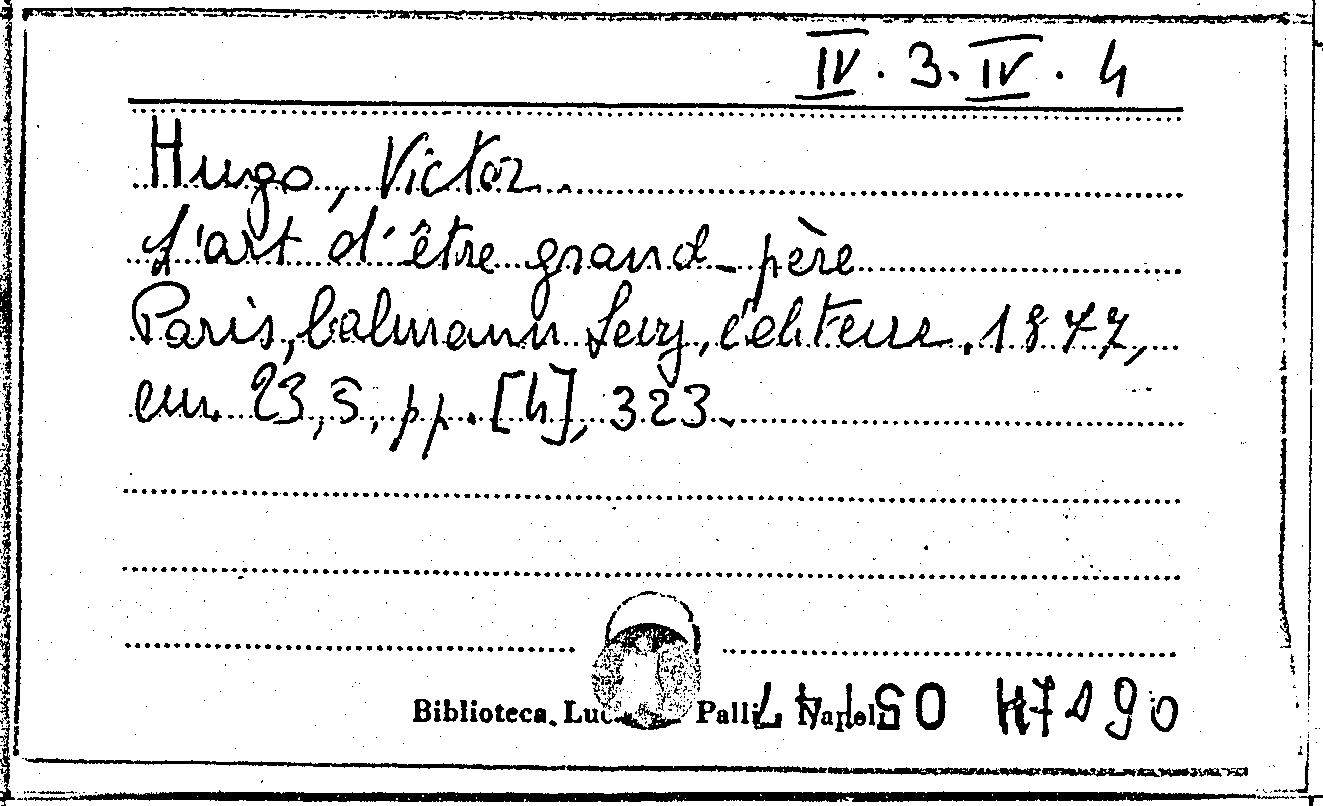 IV. 3. IV. 4
Hugo, Victor.
L'art d'être grand-père
Paris, Calmann Levy, éditeur. 1877,
cm. 23,5, pp. [4], 323.
Biblioteca Palli Napoli